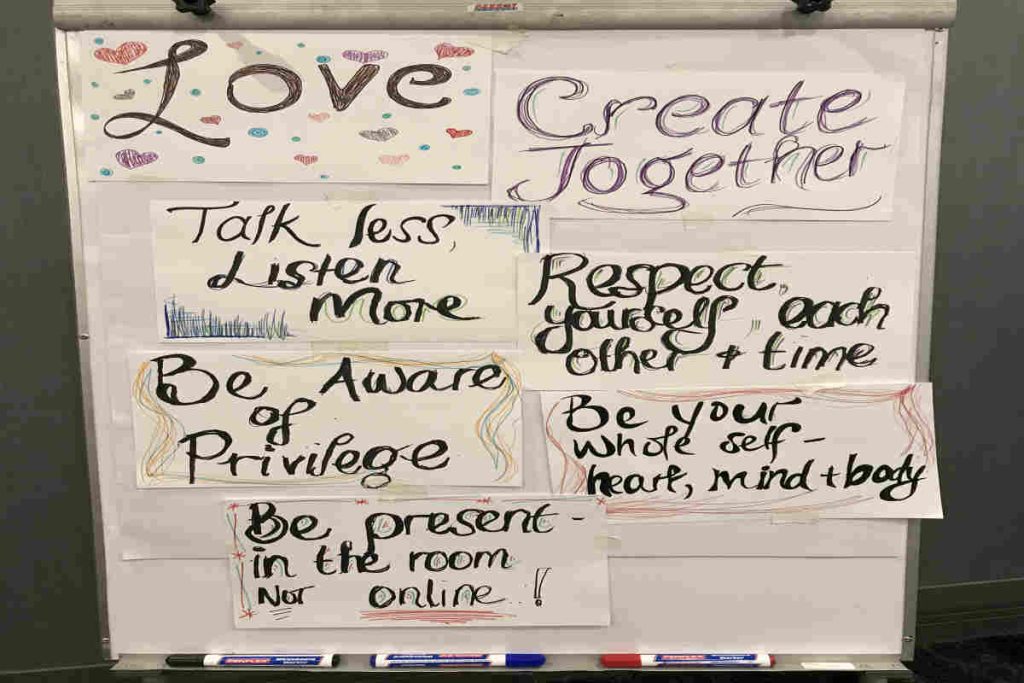 Love
Create
Together
Talk less,
Listen
More
Respect,
yourself, each
other + time
Be Aware
of
Privilege
Be your
whole self -
heart, mind + body
Be present -
in the room
NOT online !